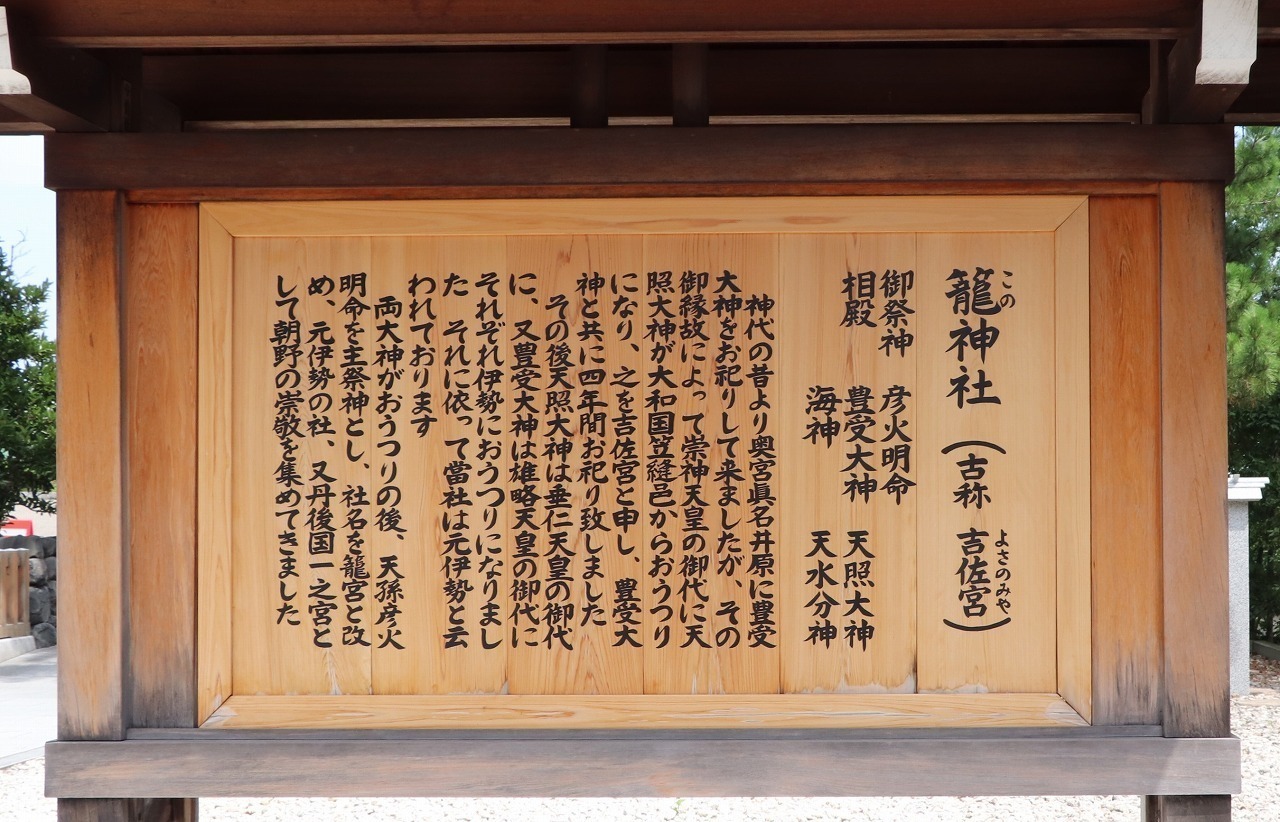 籠神社（古称　吉佐宮）
この
よさのみや
御祭神　彦火明命
相殿　豊受大神　天照大神
海神　天水分神
神代の昔より奥宮眞名井原に豊受
大神をお祀りして来ましたが、その
御縁故によって崇神天皇の御代に天
照大神が大和国笠縫邑からおうつり
になり、之を吉佐宮と申し、豊受大
神と共に四年間お祀り致しました
その後天照大神は垂仁天皇の御代
に、又豊受大神は雄略天皇の御代に
それぞれ伊勢におうつりになりまし
た　それに依って當社は元伊勢と云
われております
両大神がおうつりの後、天孫彦火
明命を主祭神とし、社名を籠宮と改
め、元伊勢の社、又丹後国一之宮と
して朝野の崇敬を集めてきました